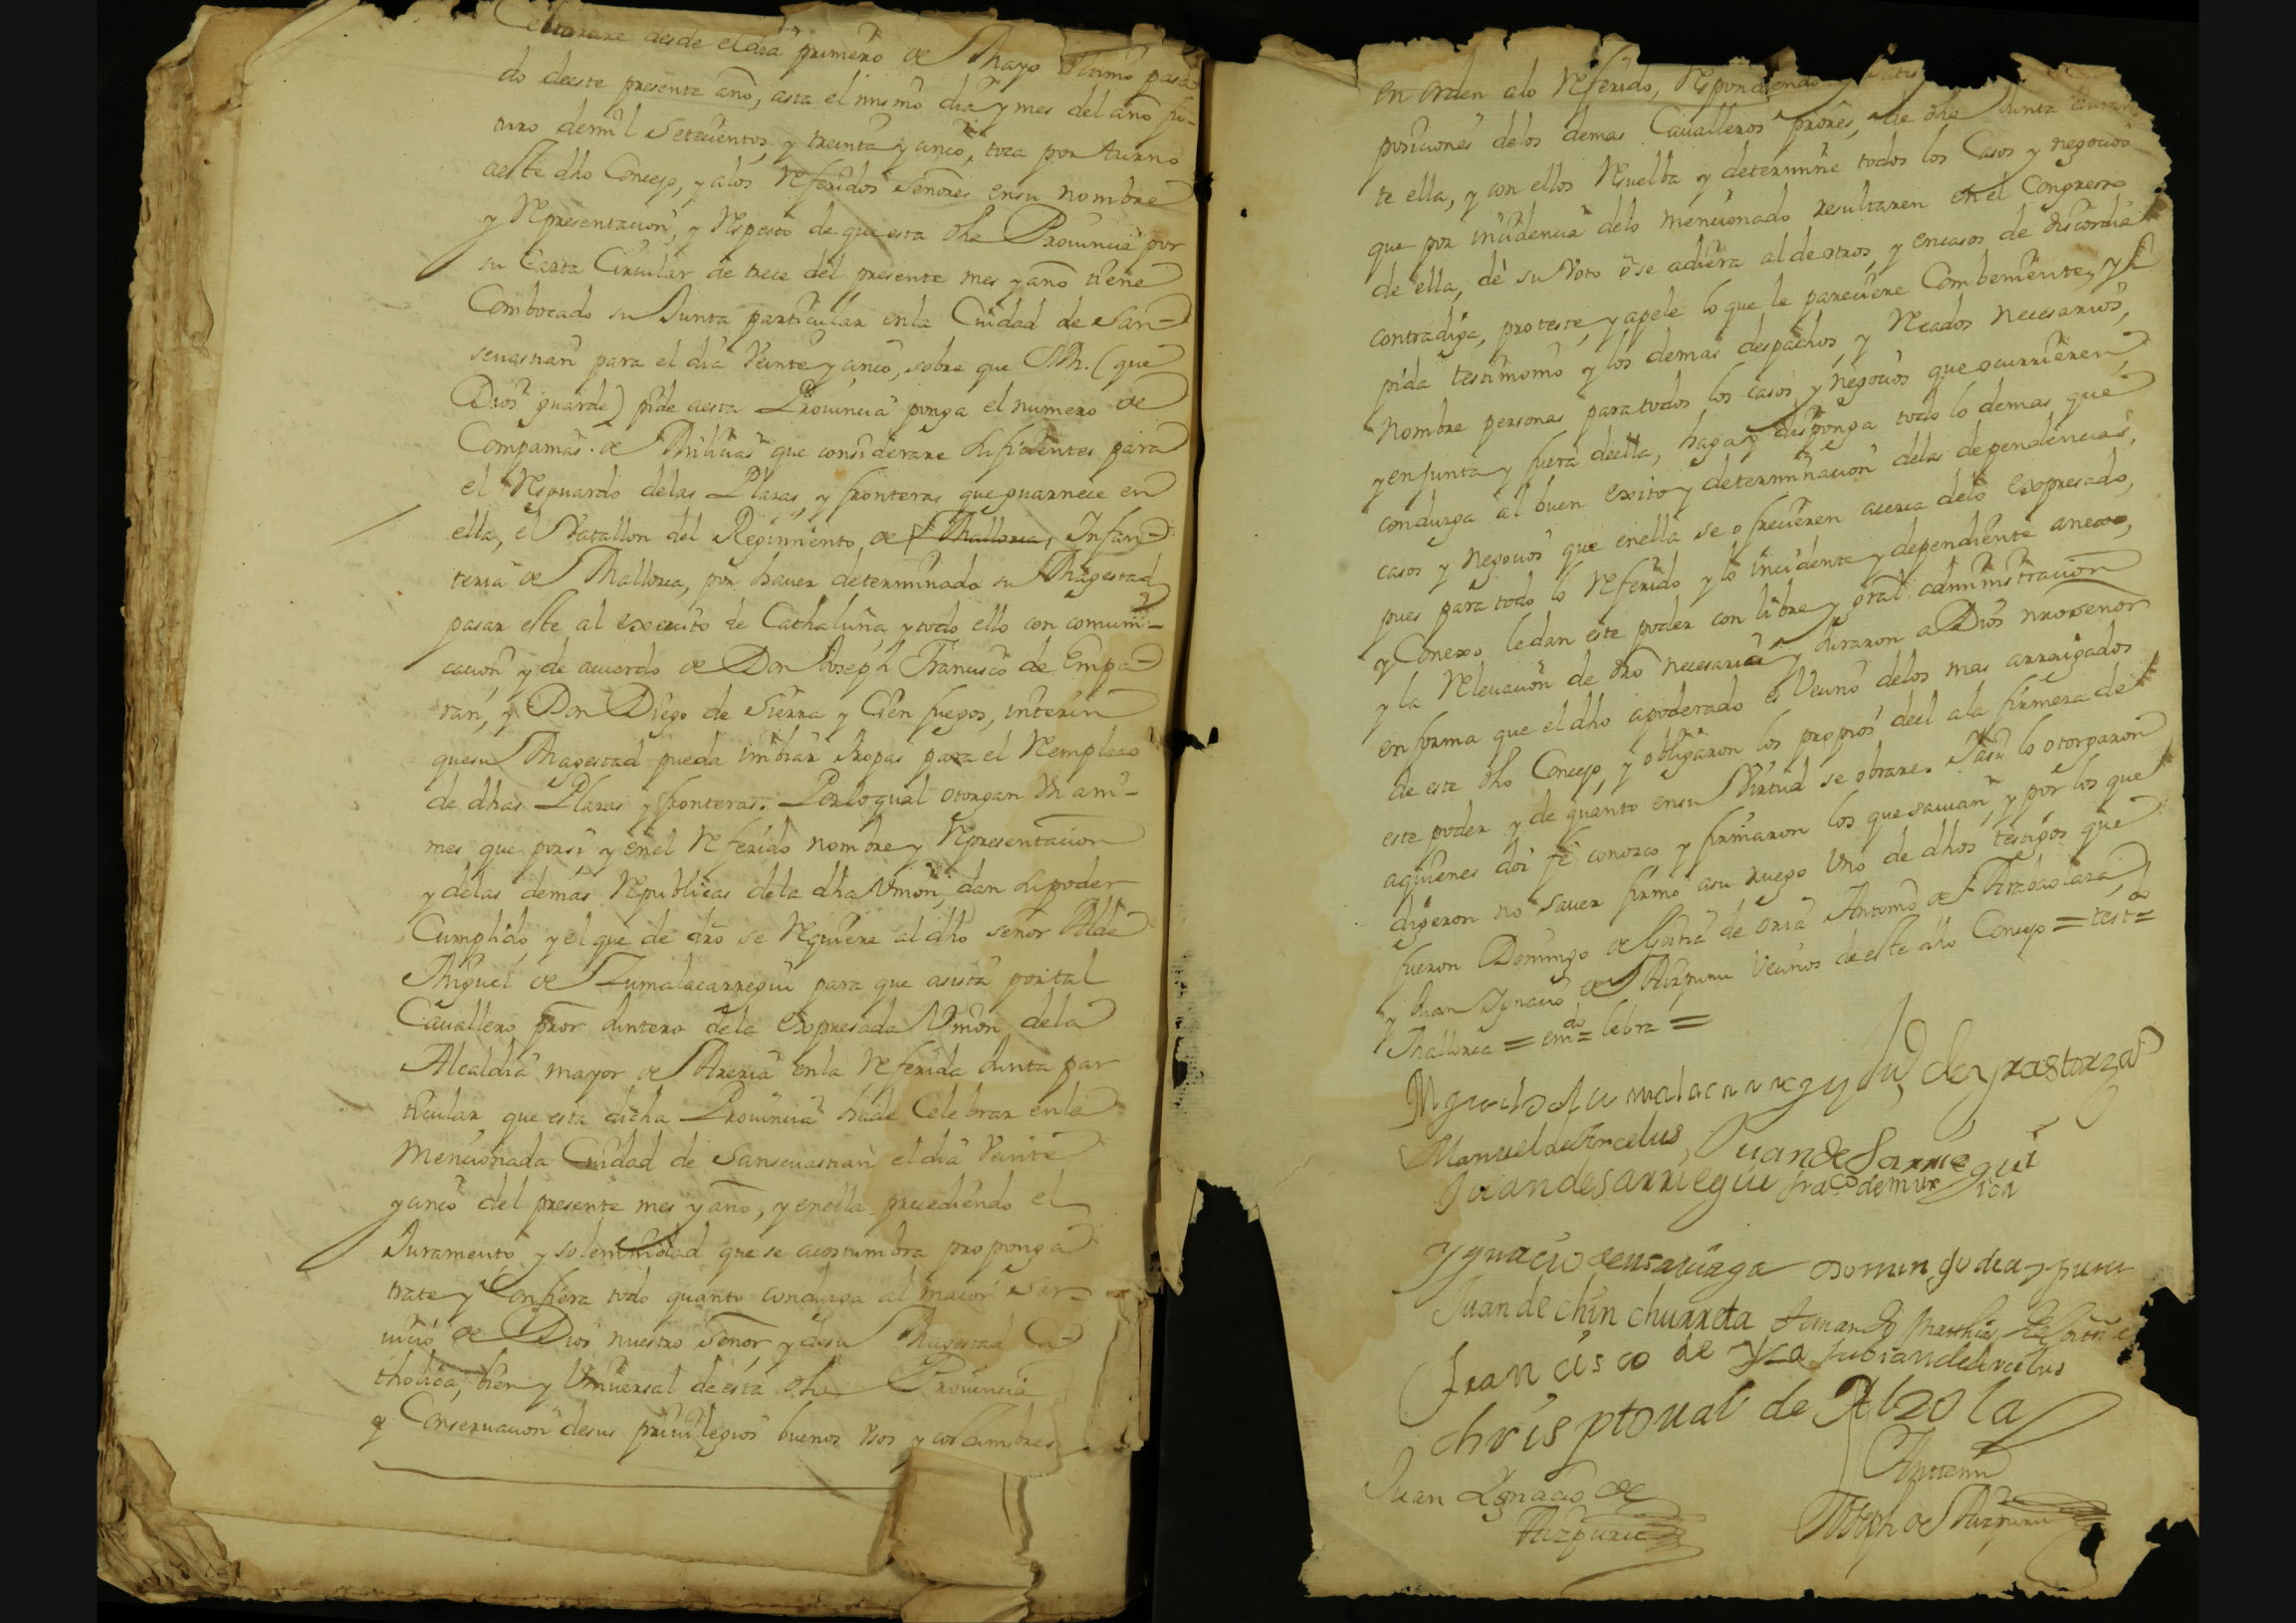 Celebrare desde el dia primero de Mayo ultimo pasa-
do deeste presente año, asta el mismo dia y mes del año fu-
turo demil Setecientos, y treinta y cinco, toca por turno
aeste dho Concejo, y alos Referidos Señores ensu nombre
y Representacion, y Respecto de que esta dha Prouincia por
su Carta Circular de trece del presente mes y año tiene
Combocado su Junta particular enla Ciudad de San
seuastian para el dia Veinte y cinco, sobre que S.M. (que
Dios guarde) pide aesta Prouincia ponga el numero de
Compañias de Milicias que considerare suficientes para
el Resguardo delas Plazas, y fronteras que guarnece en
ella, el Batallon del Regimiento de Mallorca, Infan-
teria de Mallorca, por hauer determinado su Magestad
pasar este al exercito de Cathaluña, y todo ello con comuni-
cacion y de acuerdo de Don Joseph Francisco de Empa-
ran, y Don Diego de Sierra y Cien fuegos, interin
quesu Magestad pueda imbiar tropas para el Remplazo
de dhas Plazas y fronteras. Porloqual otorgan Vnani-
mes que porsi y enel Referido nombre y Representacion
y delas demas Republicas dela dha Vnion, dan supoder
Cumplido, y el que de dro se Requiere al dho señor Alde
Miguel de Zumalacarregui para que asista portal
Cauallero pror Juntero dela expresada Vnion dela
Alcaldia mayor de Areria enla Referida Junta par
ticular, que esta dicha Prouincia hade Celebrar enla
Mencionada Ciudad de Sanseuastian el dia Veinte
y cinco del presente mes y año, y enella precediendo el
Juramento y solemnidad que se acostumbra proponga
trate y Confiera todo quanto conduzga al maior Ser-
uicio de Dios nuestro Señor y desu Magestad Ca-
tholica, bien y Vniuersal deesta dha Prouincia
y Conseruacion desus priuilegios buenos Vsos y costumbres
en orden alo Referido, Respondiendo y
posiciones delos demas Caualleros prores, de dha Junta
te ella, y con ellos Resuelba y determine todos los Casos y negocios
que por incidencia delo mencionado resultaren en el Congresso
de ella, dè su Voto o se adiera al de otros, y encasos de discordia
contradiga, proteste, y apele lo que le pareciere Combeniente, y
pida testimonio y los demas despachos y Recados necesarios,
nombre personas paratodos los casos y negocios que ocurrieren,
y en Junta y fuera deella, haga y disponga todo lo demas que
conduzga al buen exito y determinacion delas dependencias,
casos y Negocios que enella se ofrecieren acerca delo expresado,
pues para todo lo Referido y lo incidente y dependiente anexo,
y Conexo ledan este poder con libre y gral administracion
y la Releuacion de dro necesaria, y Juraron a Dios nro señor
en forma que el dho apoderado es Vecino delos mas arraigados
de este dho Concejo, y obligaron los propios deel ala firmeza de
este poder y de quanto ensu Virtud se obrare. Yasi lo otorgaron
aquienes doi fè conozco y firmaron los que sauian, y por los que
digeron no sauer firmò asu ruego Vno de dhos testigos que
fueron Domingo de Goitia de oria Antonio de Arbaolaza,
y Juan Ygnacio de Aizpuru Vecinos deeste dho Concejo = testdo =
Mallorca = emdo = lebra =
Miguel de Zumalacarreguy Jud de yrastorza
Manuel de Arcelus, Juan de Sarriegui
Juan de Sarriegui franco de mux
Ygnacio de Usauiaga Domingo de azpuru
Juan de chinchurreta
Francisco de Yza
Christoual de Alzola
Juan Ignacio de
Aizpuru
Antemi
Joseph de Aizpuru